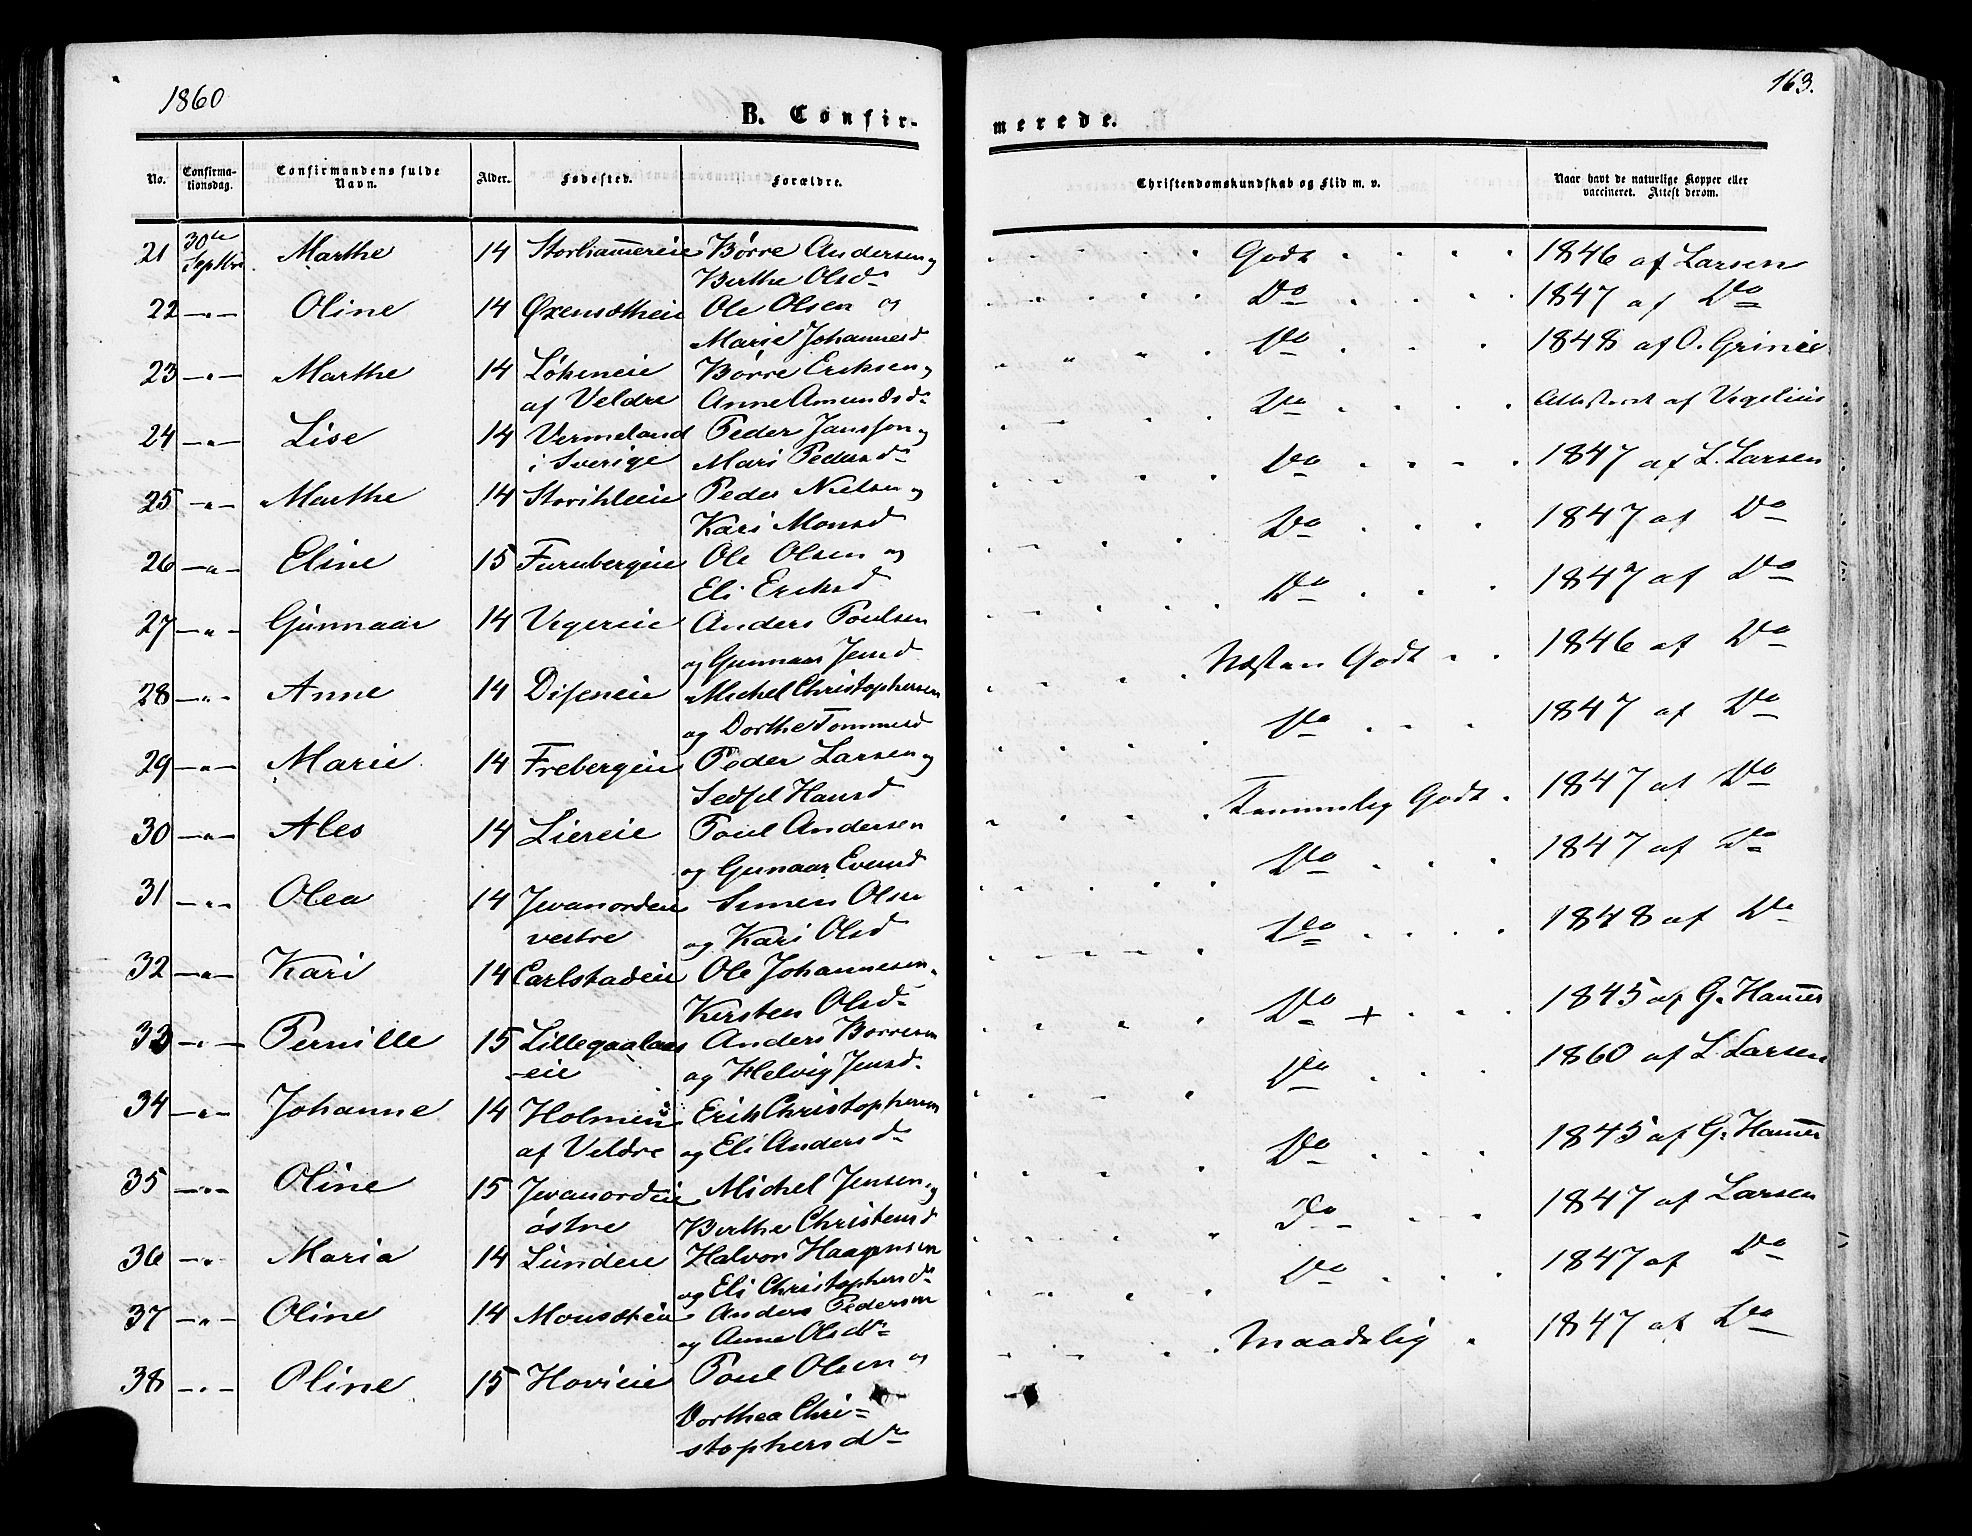 1860
163.
B. Confir-
merede.
No. Confirma-tionsdag. Confirmandens fulde Navn. Alder. Fødested. Forældre. Christendomskundskab og Flid m. v. Naar havt de naturlige Kopper eller vaccineret. Attest derom.
21 30te Septbr. Marthe 14 Storhamereie Børre Andersen og Godt 1846 af Larsen
Berthe Olsd
22 -"- Oline 14 Øxensætheie Ole Olsen og Do 1847 af Do
Marie Johannesd
23 -"- Marthe 14 Løkeneie Børre Eriksen og Do 1848 af O. Grineie
af Veldre Anne Amundsd
24 -"- Lise 14 Vermeland Peder Jansson og Do Attesteret af Vegelius
i Sverige Mari Pedersd
25 -"- Marthe 14 Storihleie Peder Nielsen og Do 1847 af L. Larsen
Kari Monsd
26 -"- Eline 15 Furubergeie Ole Olsen og Do 1847 af Do
Eli Eriksd
27 -"- Gunnaar 14 Vegereie Anders Poulsen Do 1847 af Do
og Gunnaar Jensd
28 -"- Anne 14 Diseneie Michel Christophersen Næsten Godt 1846 af Do
og Dorthe Tommesd
29 -"- Marie 14 Frebergeie Peder Larsen og Do 1847 af Do
Sedsel Hansd
30 -"- Ales 14 Liereie Poul Andersen Temmelig Godt 1847 af Do
og Gunaar Evensd
31 -"- Olea 14 Jevanordeie Simen Olsen Do 1847 af Do
vestre og Kari Olsd
32 -"- Kari 14 Carlstadeie Ole Johannesen Do 1848 af Do
Kersten Olsd
33 -"- Pernille 15 Lillegaalaas Anders Børresen Do + 1845 af G. Hamer
-eie og Helvig Jensd
34 -"- Johanne 14 Holmeneie Erik Christophersen Do 1860 af L. Larsen
af Veldre og Eli Andersd
35 -"- Oline 15 Jevanordeie Michel Jensen og Do 1845 af G. Hamer
østre Berthe Christensd
36 -"- Maria 14 Lundeie Halvor Haagensen Do 1847 af Larsen
og Eli Christophersd
37 -"- Oline 14 Monsæteie Anders Pedersen Do 1847 af Do
og Anne Olsdr
38 -"- Oline 15 Hovieie Poul Olsen og Maadelig 1847 af Do
Dorthea Chri=
stophersdr